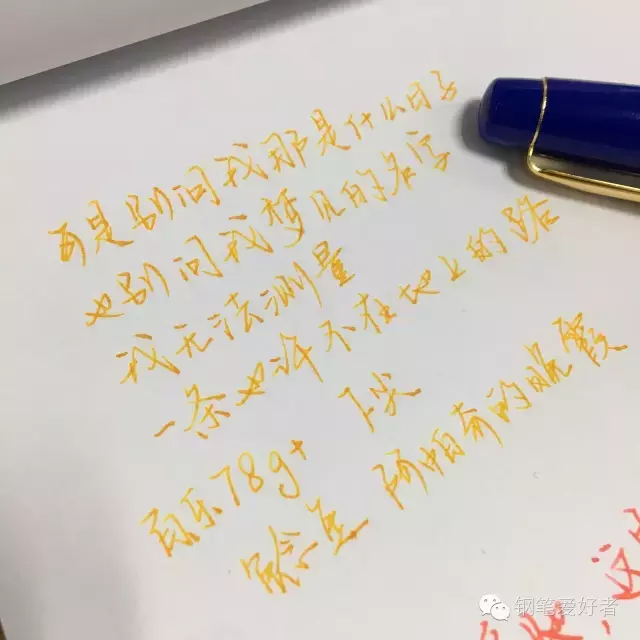 可是别问我那是什么因子
也别问我梦见的是谁
我无法测量
一条也许不在地上的路
百乐78g+ 下尖
除 夕阳前的晚霞
钢笔爱好者